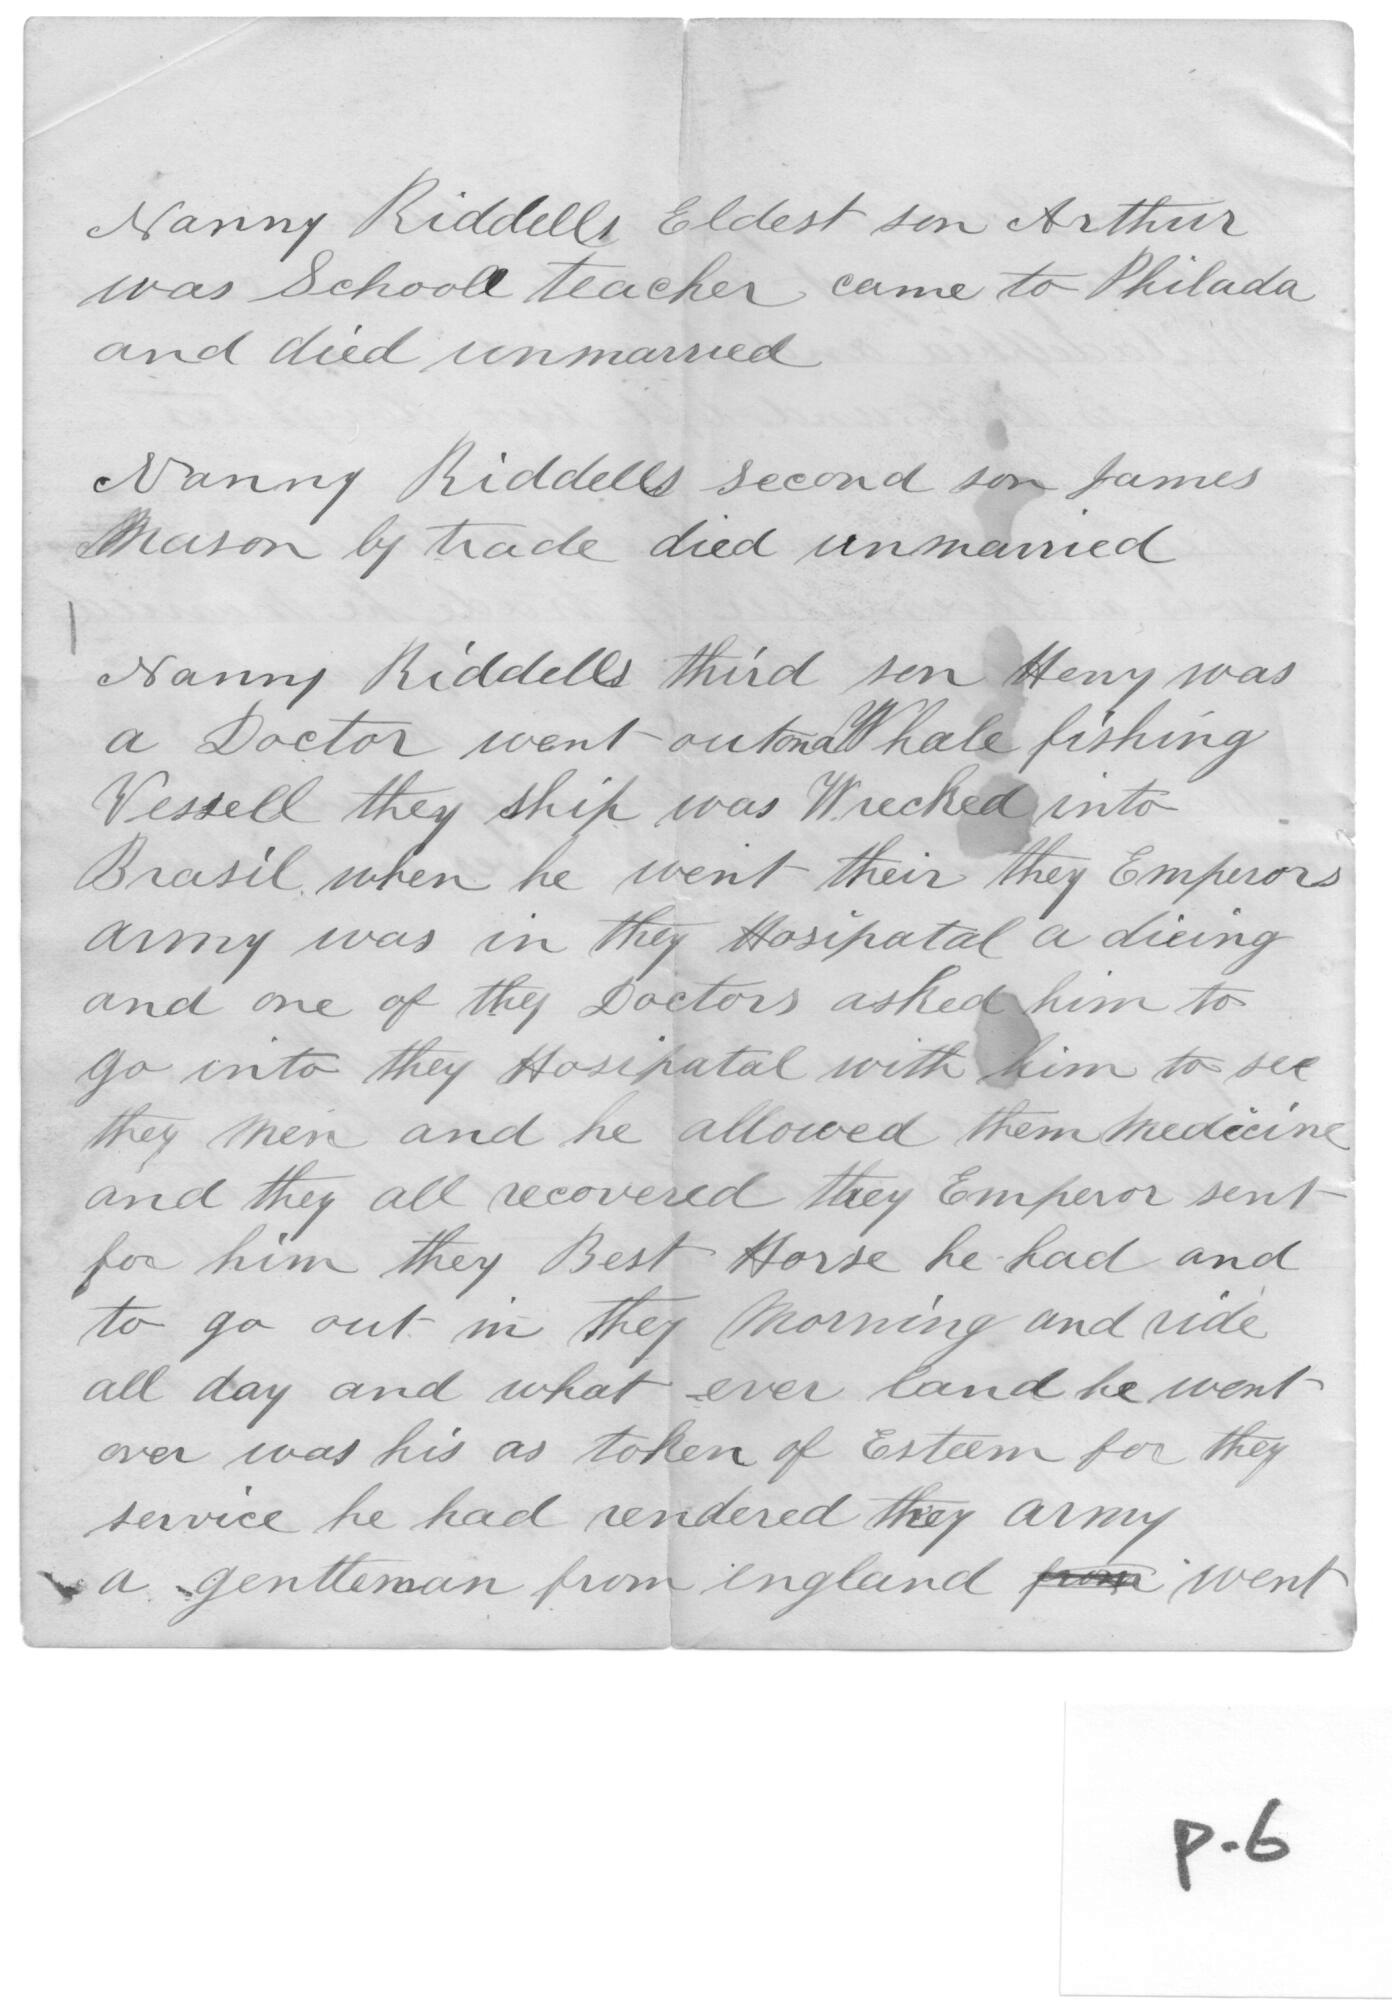 Nanny Riddells Eldest son Arthur
was Schooll teacher came to Philada
and died unmarried
Nanny Riddells second son James
Mason by trade died unmarried
Nanny Riddells third son Heny was
a Doctor went out on a Whale fishing
Vessell they ship was Wrecked into
Brasil when he went their they Emperors
army was in they Hosipatal a dicing
and one of they Doctors asked him to
go into they Hosipatal with him to see
they men and he allowed them medicine
and they all recovered they Emperor sent
for him they Best Horse he had and
to go out in they Morning and ride
all day and what ever land he went
over was his as token of Esteem for they
service he had rendered they army
a gentleman from england from went
p.6